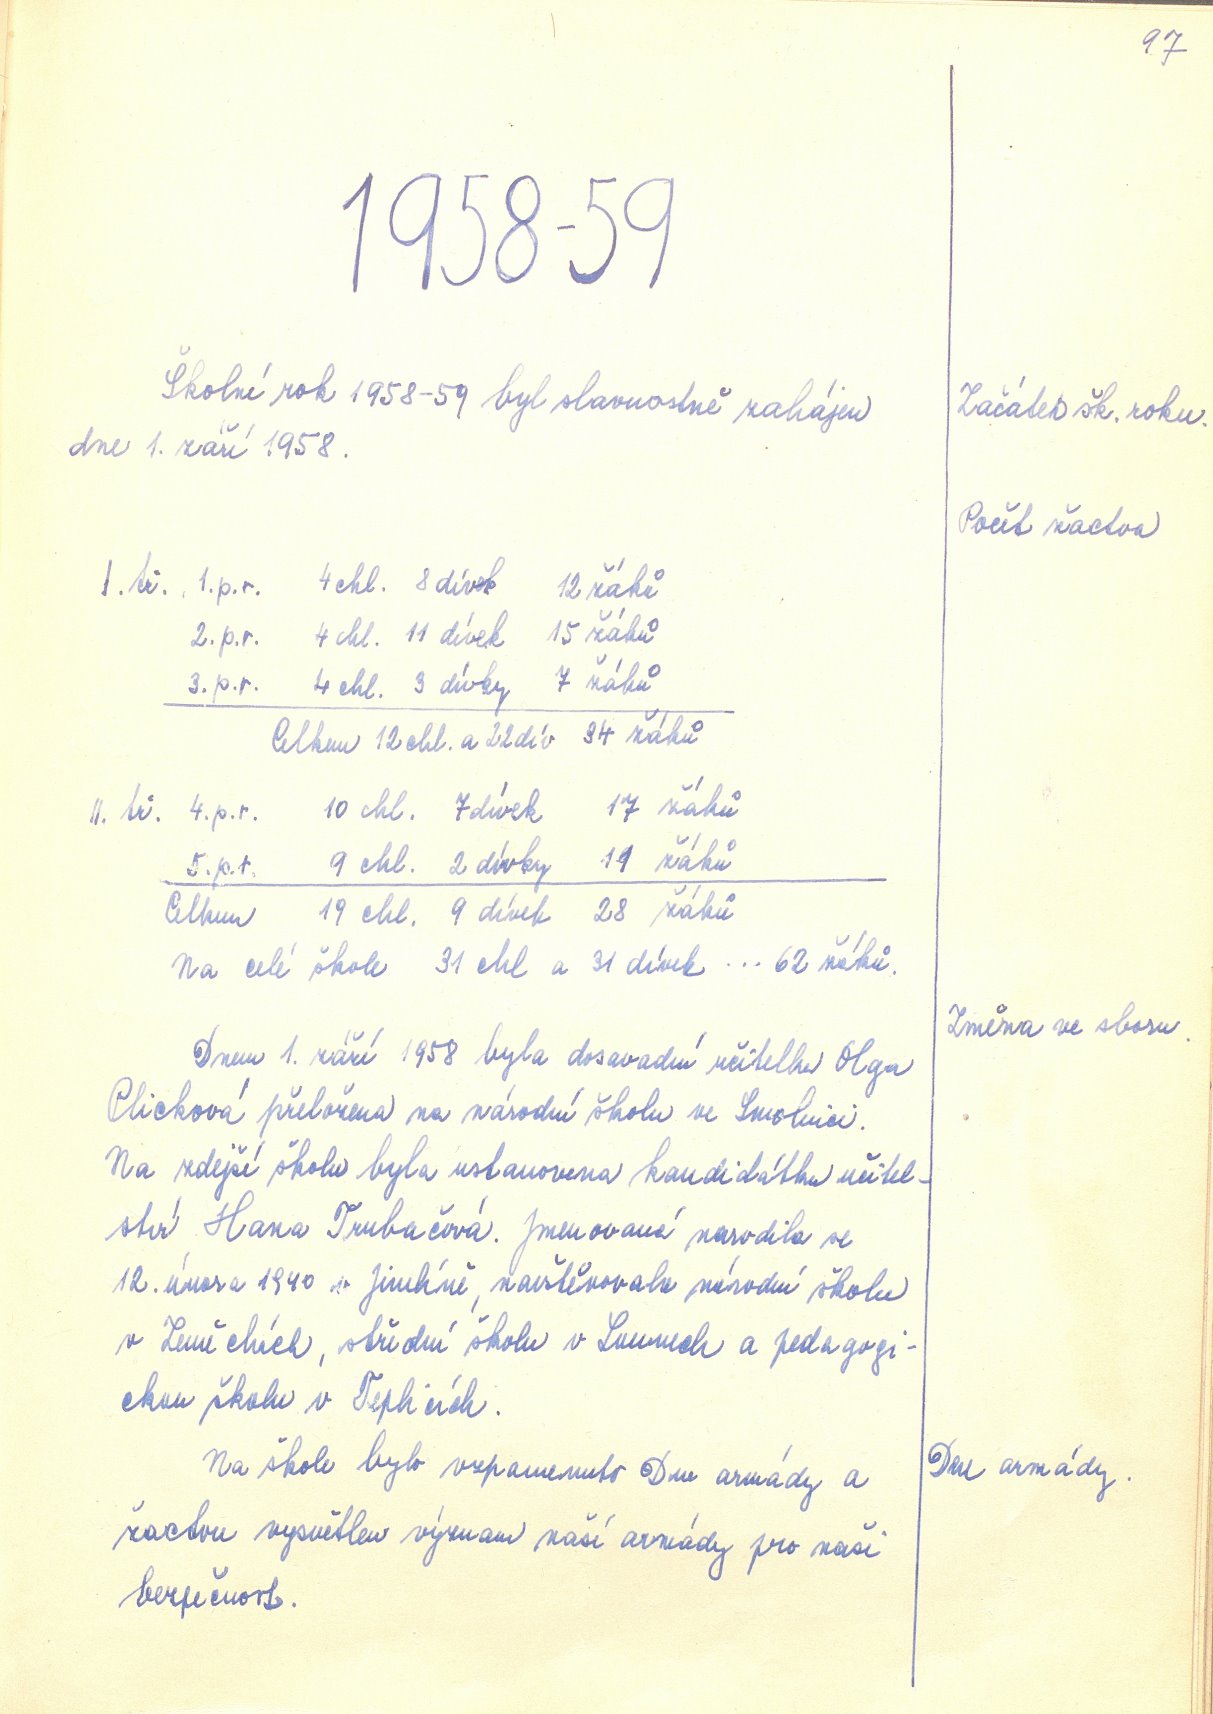 97
1958-59
Školní rok 1958-59 byl slavnostně zahájen
Začátek šk. roku.
dne 1. září 1958.
Počet žactva
I. tř. 1. p.r. 4 chl. 8 dívek 12 žáků
2. p.r. 4 chl. 11 dívek 15 žáků
3. p.r. 4 chl. 3 dívky 7 žáků
Celkem 12 chl. a 22 dív 34 žáků
II. tř. 4. p.r. 10 chl. 7 dívek 17 žáků
5. p.r. 9 chl. 2 dívky 11 žáků
Celkem 19 chl. 9 dívek 28 žáků
Na celé škole 31 chl a 31 dívek ... 62 žáků.
Změna ve sboru.
Dnem 1. září 1958 byla dosavadní učitelka Olga
Plicková přeložena na národní školu ve Smolnici.
Na zdejší školu byla ustanovena kandidátka učitel-
ství Hana Trubačová. Jmenovaná narodila se
12. února 1940 v Jimlíně, navštěvovala národní školu
v Zeměchích, střední školu v Lounech a pedagogi-
ckou školu v Teplicích.
Na škole bylo vzpomenuto Dne armády a
Den armády.
žactvu vysvětlen význam naší armády pro naši
bezpečnost.